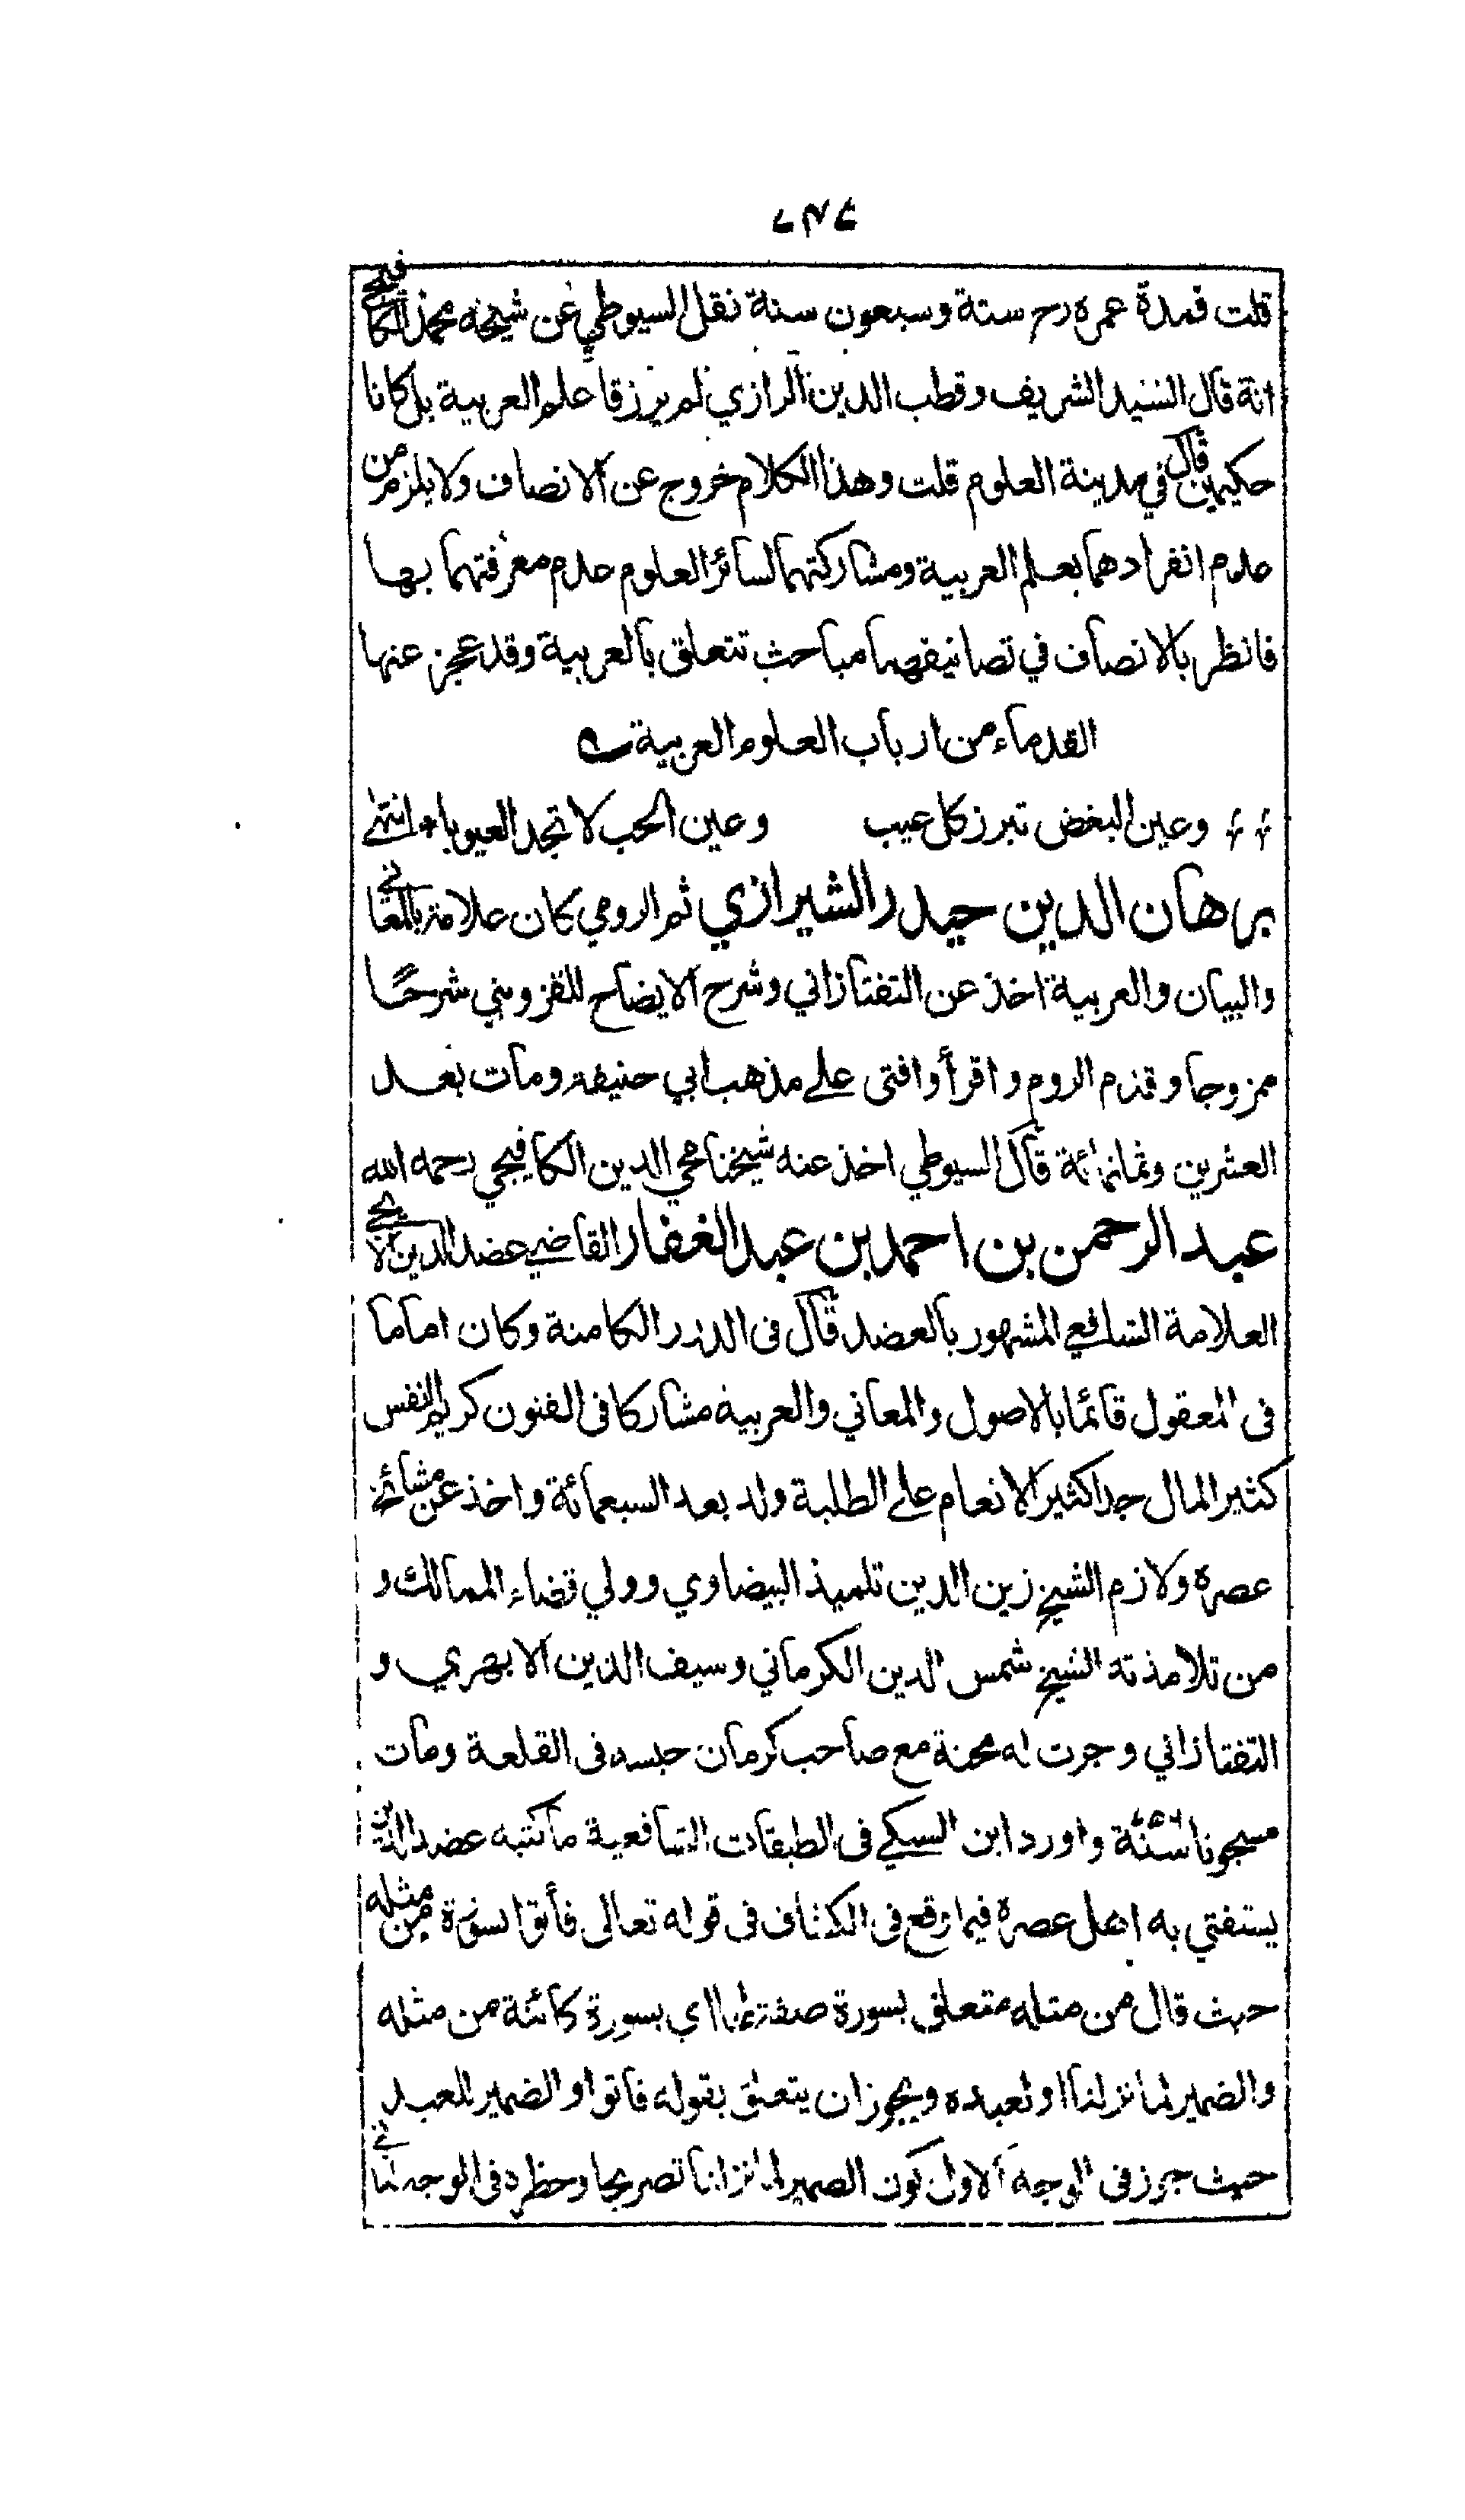 قلت فمدة عمره رح ستة وسبعون سنة نقل السيوطي عن شيخه محمد الكافيجي
انه قال السيد الشريف وقطب الدين الرازي لم يرزقا علم العربية بل كانا
حكيمين قال في مدينة العلوم قلت وهذا الكلام خروج عن الانصاف ولا يلزم من
عدم انفرادهما بعلم العربية ومشاركتهما لسائر العلوم عدم معرفتهما بها
فانظر بالانصاف في تصانيفهما مباحث تتعلق بالعربية وقد عجز عنها
القدماء من ارباب العلوم العربية
وعين البغض تبرز كل عيب وعين الحب لا تجد العيوبا انتهى
برهان الدين حيدر الشيرازي ثم الرومي كان علامة بالمعاني
والبيان والعربية اخذ عن التفتازاني وشرح الايضاح للقزويني شرحًا
ممزوجا وقدم الروم واقرأ وافتى على مذهب ابي حنيفة ومات بعد
العشرين وثمانمائة قال السيوطي اخذ عنه شيخنا محي الدين الكافيجي رحمه الله
عبد الرحمن بن احمد بن عبد الغفار القاضي عضد الدين الايجي
العلامة الشافعي المشهور بالعضد قال فى الدرر الكامنة وكان اماما
فى المعقول قائما بالاصول والمعاني والعربية مشاركا فى الفنون كريم النفس
كثير المال جدا كثير الانعام على الطلبة ولد بعد السبعمائة واخذ عن مشائخ
عصره ولازم الشيخ زين الدين تلميذ البيضاوي وولي قضاء الممالك و
من تلامذته الشيخ شمس الدين الكرماني وسيف الدين الابهري و
التفتازاني وجرت له محنة مع صاحب كرمان حبسه فى القلعة ومات
مسجونا سنة واورد ابن السبكي فى الطبقات الشافعية ما كتبه عضد الدين
يستفتي به اهل عصره فيما وقع فى الكشاف فى قوله تعالى فأتوا بسورة من مثله
حيث قال من مثله متعلق بسورة صفة لها اي بسورة كائنة من مثله
والضمير لما نزلنا او لعبده ويجوز ان يتعلق بقوله فاتوا والضمير للعبد
حيث جوز فى الوجه الاول كون الضمير لما نزلنا تصريحا وحظره فى الوجه الثاني